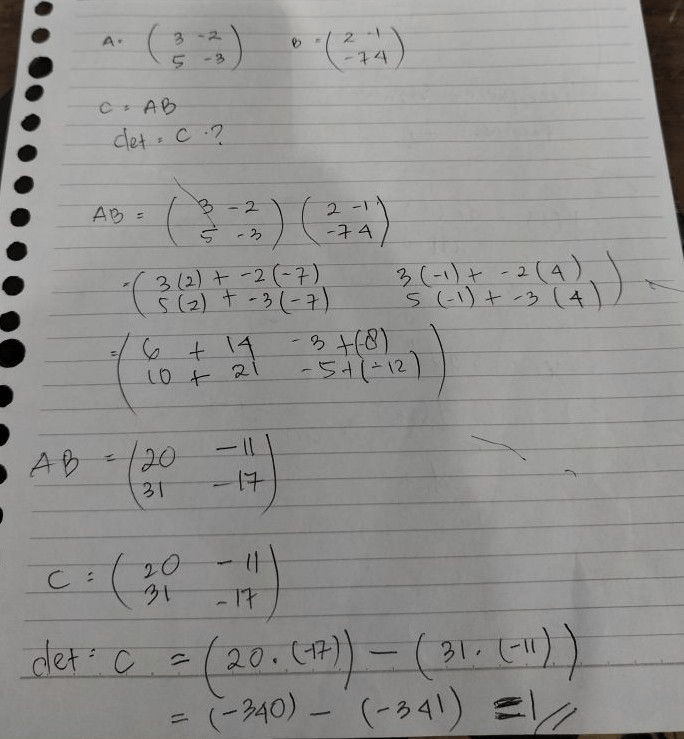 A = (3 -2)  B = (2 -1)
(5 -3)  (-7 4)
C = AB
det = C .?
AB = (3 -2) (2 -1)
(5 -3) (-7 4)
= (3(2) + -2(-7)  3(-1) + -2(4))
(5(2) + -3(-7)  5(-1) + -3(4))
= (6 + 14  -3 + (-8))
(10 + 21  -5 + (-12))
AB = (20  -11)
(31  -17)
C = (20  -11)
(31  -17)
det = C = (20 . (-17)) - (31 . (-11))
= (-340) - (-341) = 1 //